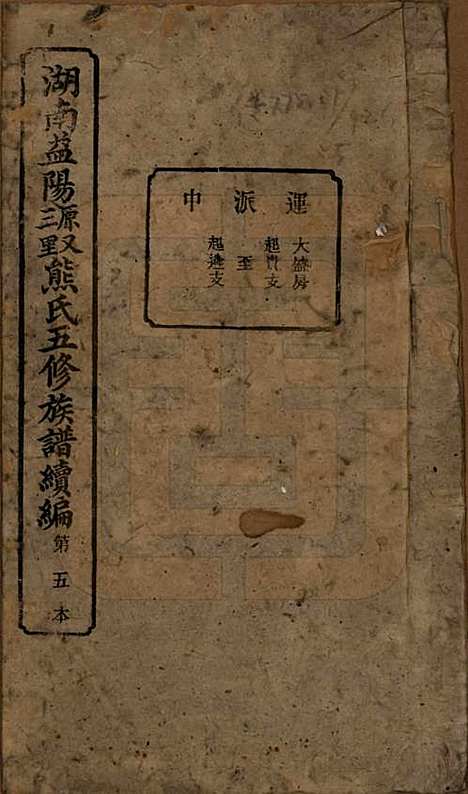 湖南益陽三里源又熊氏五修族譜續編 第五本
運派中
大盛房
起貴支
至
起逵支